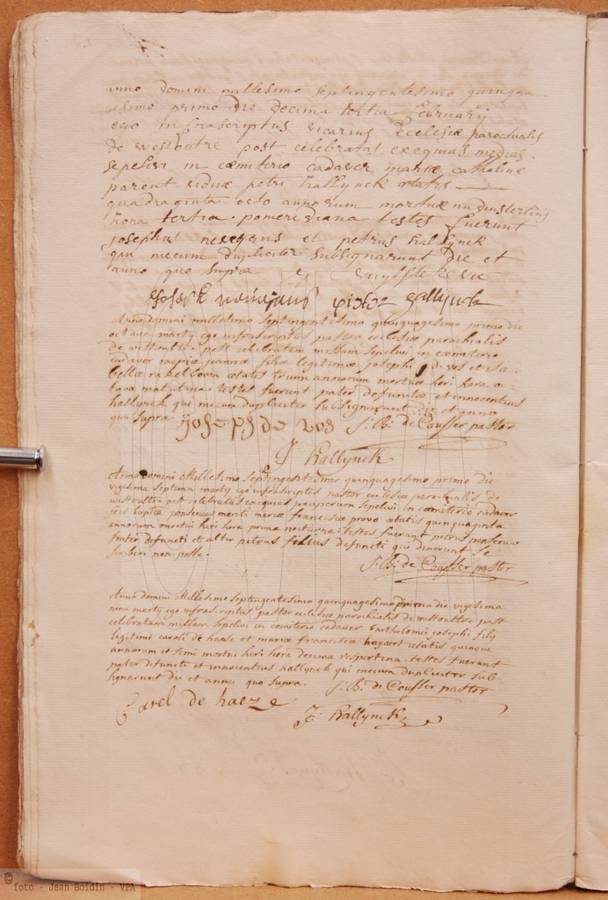 anno domini millesimo septingentesimo quinqua
esimo primo die decima tertia february
ego infrascriptus vicarius ecclesiæ parochialis
de westoutre post celebratas exequias medias
sepelivi in cœmiterio cadaver mariæ catharinæ
parent viduæ petri hallynck ætatis
quadraginta octo annorum mortuæ nudiustertius
hora tertia pomeridiana testes fuerunt
josephus et petrus hallynck
qui mecum dupliciter subsignarunt die et
anno quo supra
joseph pieter hallynck
Anno domini millesimo septingentesimo quinquagesimo primo die
octava marty ego infrascriptus pastor ecclesiæ parochialis
de westoutre post celebratam missam sepelivi in cœmeterio
cadaver joannæ filiæ legitimæ josephi de vos et isa-
bellæ ætatis trium annorum mortuæ heri hora o-
tava matutina testes fuerunt pater defunctæ et innocentius
hallynck qui mecum dupliciter subsignarunt die et anno
quo supra joseph de vos J: B: de Cousser pastor
J hallynck
Anno domini Millesimo septingentesimo quinquagesimo primo die
vigesima septima marty ego infrascriptus pastor ecclesiæ parochialis de
westoutre post celebratas exequias pauperum sepelivi in cœmeterio cadaver
franciscæ provo ætatis quinquaginta
annorum mortui heri hora prima nocturna: testes fuerunt petrus
frater defuncti et alter petrus filius defuncti qui dixerunt se
scribere non posse:
J: B: de Cousser pastor
Anno domini Millesimo septingentesimo quinquagesimo primo die vigesima
nona marty ego infrascriptus pastor ecclesiæ parochialis de westoutre post
celebratam missam sepelivi in cœmeterio cadaver bartholomei josephi filij
legitimi caroli de haese et mariæ franciscæ ætatis quinque
annorum et semi mortui heri hora decima vespertina testes fuerunt
pater defuncti et innocentius hallynck qui mecum dupliciter sub-
signarunt die et anno quo supra. J: B: de Cousser pastor
Carel de haeze J: hallynck
© foto - Jean Boidin - VPA